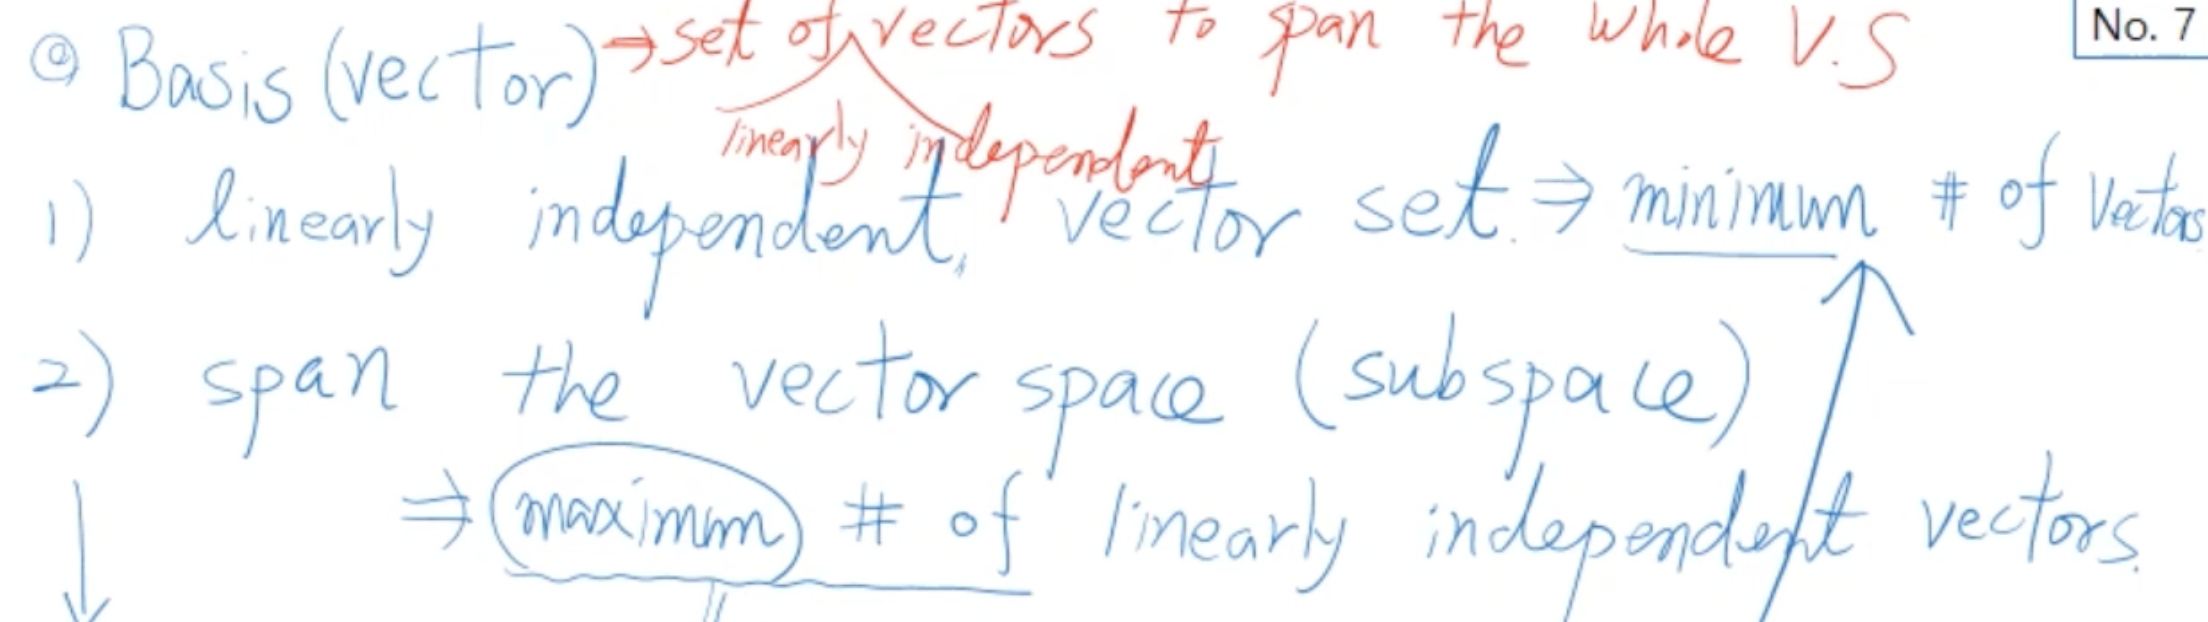 @ Basis (vector) → set of vectors to span the whole V.S
No. 7
linearly independent
1) linearly independent, vector set. ⇒ minimum # of vectors
2) span the vector space (subspace)
⇒ maximum # of linearly independent vectors.